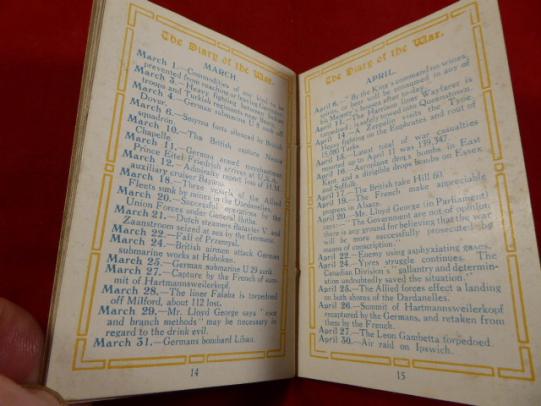 The Diary of the War.
MARCH
March 1.—Commodities of any kind to be
prevented from reaching or leaving Germany.
March 3.—Heavy fighting between Indian
troops and Turkish regiments near
March 4.—German submarine U 8 sunk off
Dover.
March 6.—Smyrna forts silenced by British
squadron.
March 10.—The British capture Neuve
Chapelle.
March 11.—German armed merchantman
Prinz Eitel Friedrich arrives at U.S.A.
March 12.—Admiralty report loss of H.M.
auxiliary cruiser Bayano.
March 18.—Three vessels of the Allied
Fleets sunk by mines in the Dardanelles.
March 20.—Successful operations by the
Union Forces under General Botha.
March 21.—Dutch steamers Batavier V. and
Zaanstroom seized at sea by the Germans.
March 22.—Fall of Przemysl.
March 24.—British airmen attack German
submarine works at Hoboken.
March 25.—German submarine U 29 sunk.
March 27.—Capture by the French of sum-
mit of Hartmannsweilerkopf.
March 28.—The liner Falaba is torpedoed
off Milford, about 112 lost.
March 29.—Mr. Lloyd George says "root
and branch methods" may be necessary in
regard to the drink evil.
March 31.—Germans bombard Libau.
14
The Diary of the War.
APRIL.
April 6.—"By the King's command no wines,
spirits, or beer will be consumed in any of
his Majesty's houses after to-day."
April 11.—The Harrison liner Wayfarer is
torpedoed; is safely towed into Queenstown.
April 14.—A Zeppelin visits the Tyne.
Heavy fighting on the Euphrates and rout of
15,000 Turks.
April 15.—Latest total of war casualties
reported up to April 11 was 139,347.
April 16.—Aeroplane drops bombs in East
Kent and a dirigible drops bombs on Essex
and Suffolk.
April 17.—The British take Hill 60.
April 19.—The French make appreciable
progress in Alsace.
April 20.—Mr. Lloyd George (in Parliament)
says:—"The Government are not of opinion
there is any ground for believing that the war
will be more successfully prosecuted by
means of conscription."
April 22.—Enemy using asphyxiating gases.
April 24.—Ypres struggle continues. The
Canadian Division's "gallantry and determin-
ation undoubtedly saved the situation."
April 25.—The Allied forces effect a landing
on both shores of the Dardanelles.
April 26.—Summit of Hartmannsweilerkopf
recaptured by the Germans, and retaken from
them by the French.
April 27.—The Leon Gambetta torpedoed.
April 30.—Air raid on Ipswich.
15